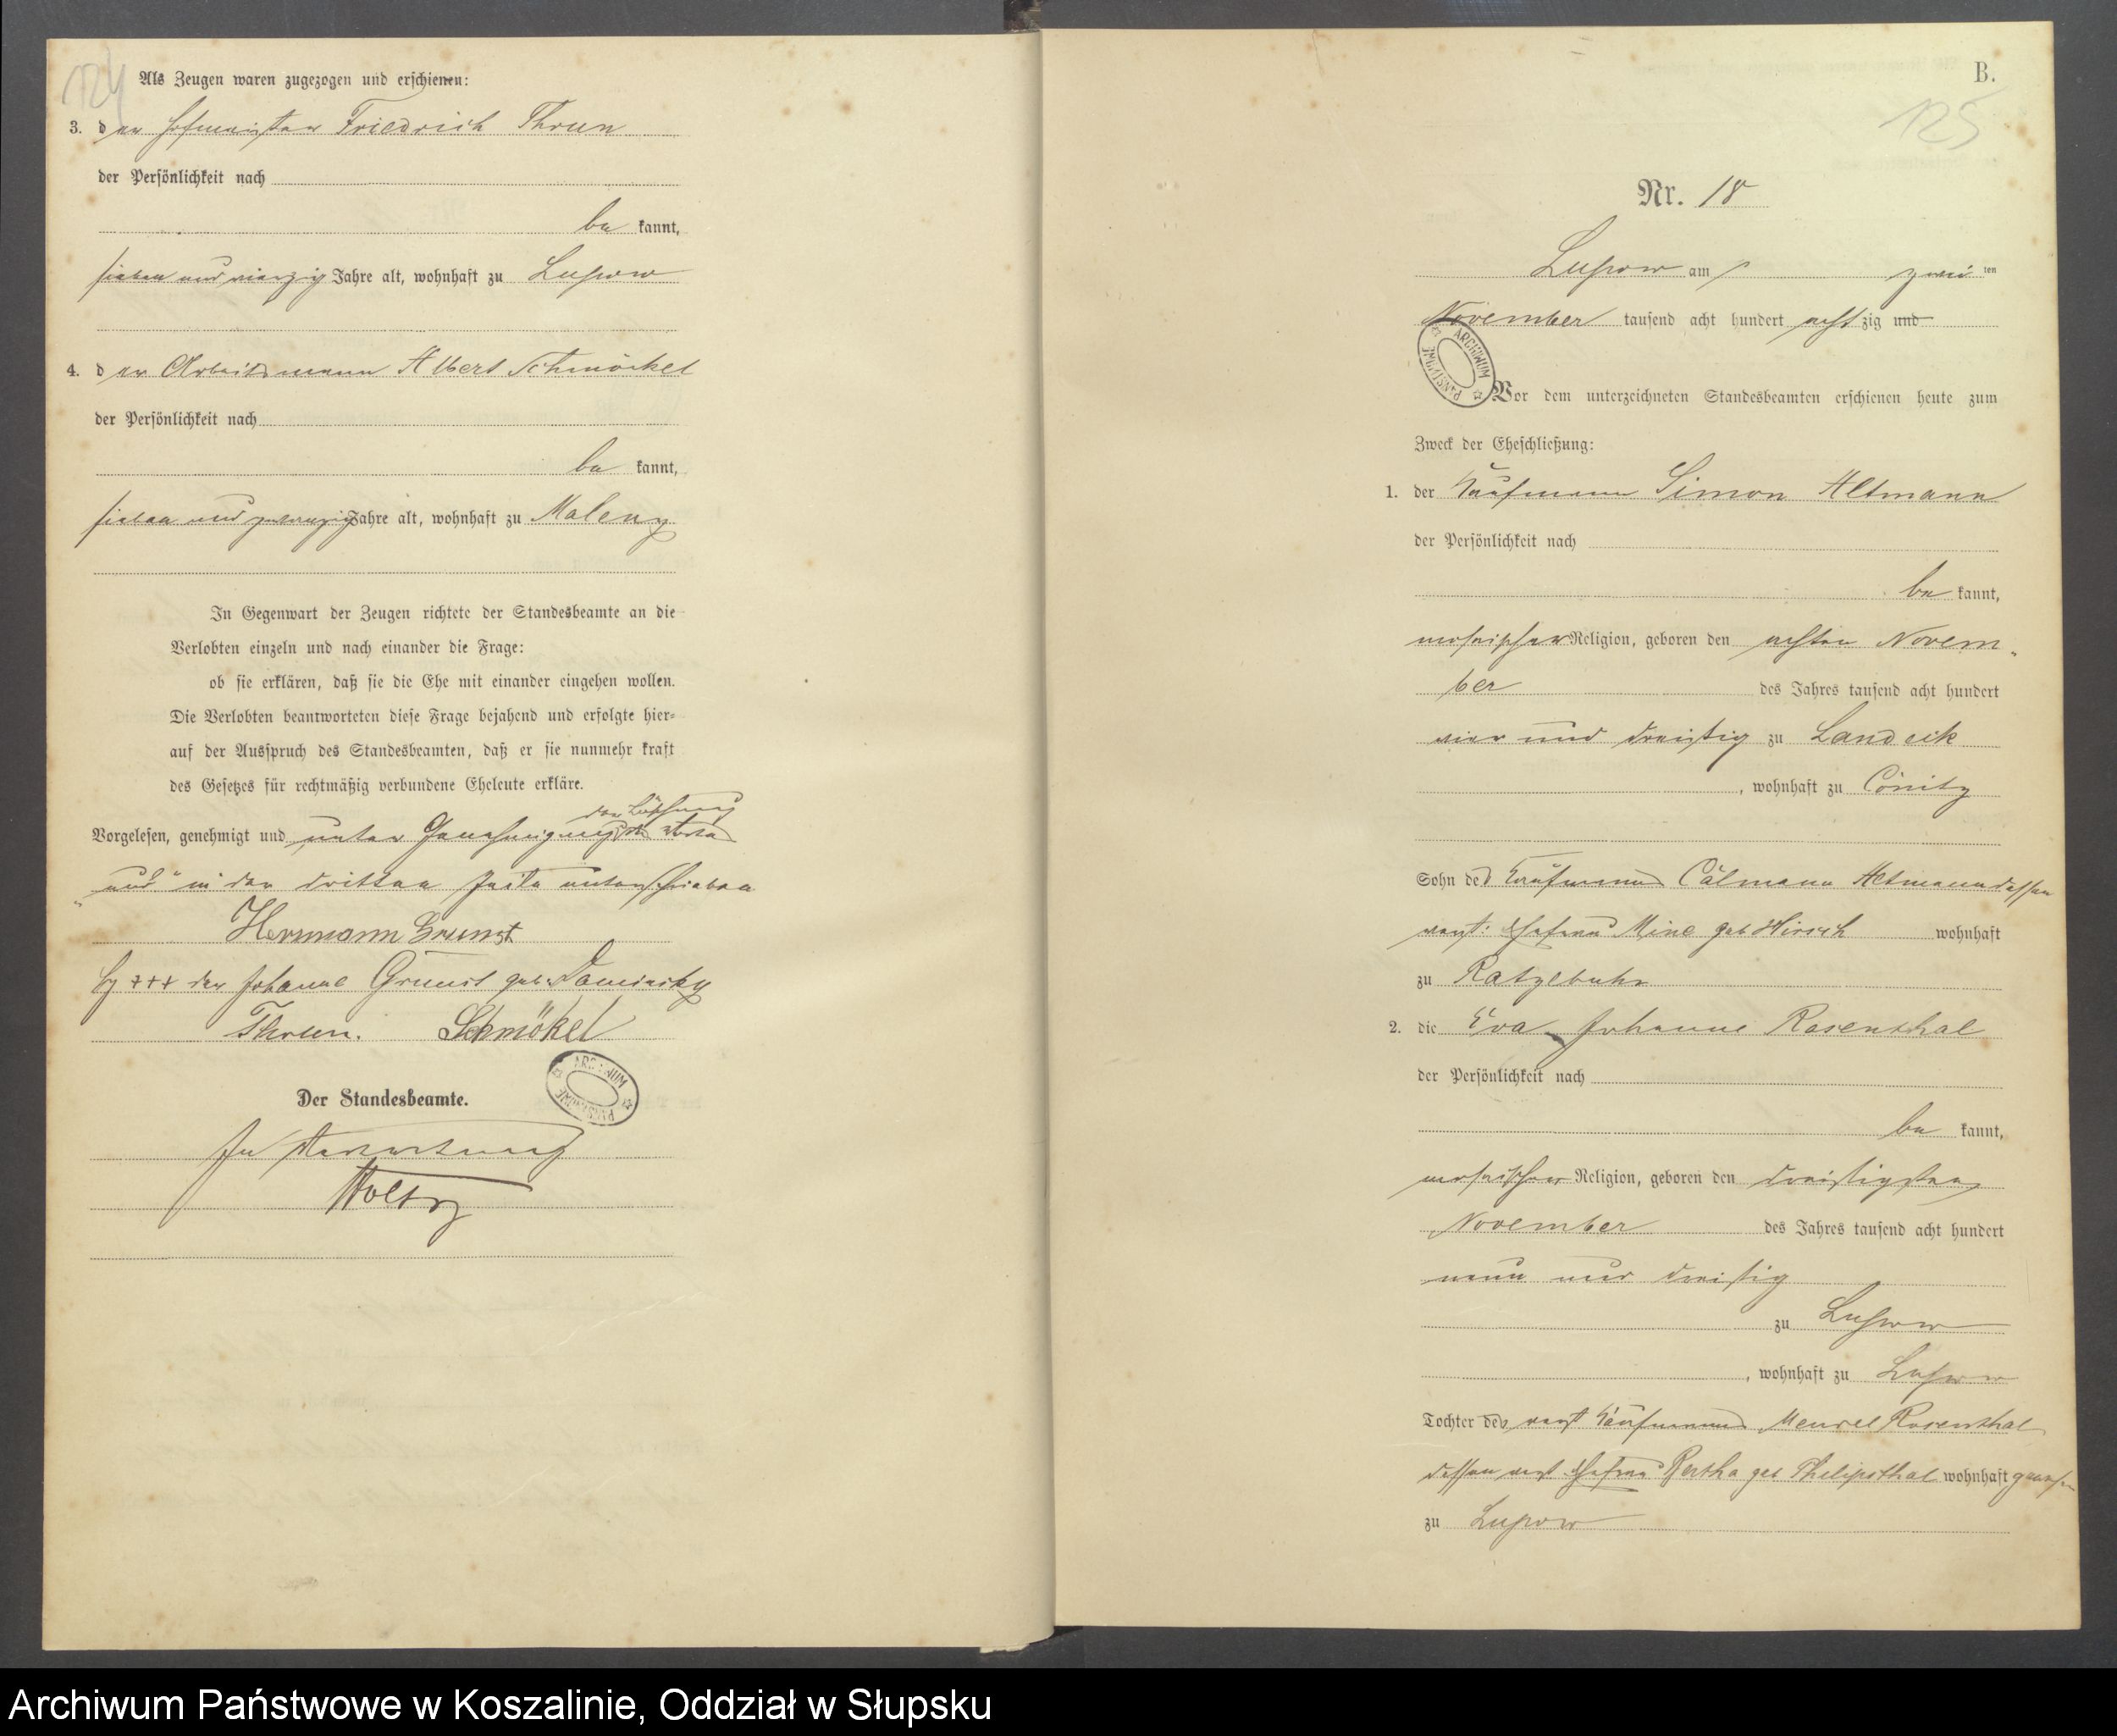 124
Als Zeugen waren zugezogen und erschienen:
3. der Hofmeister Friedrich Thrun
der Persönlichkeit nach
be kannt,
sieben und vierzig Jahre alt, wohnhaft zu Lupow
4. der Arbeitsmann Albert Schmöckel
der Persönlichkeit nach
be kannt,
sieben und zwanzig Jahre alt, wohnhaft zu Malenz
In Gegenwart der Zeugen richtete der Standesbeamte an die
Verlobten einzeln und nach einander die Frage:
ob sie erklären, daß sie die Ehe mit einander eingehen wollen.
Die Verlobten beantworteten diese Frage bejahend und erfolgte hier-
auf der Ausspruch des Standesbeamten, daß er sie nunmehr kraft
des Gesetzes für rechtmäßig verbundene Eheleute erkläre.
der Löschung
Vorgelesen, genehmigt und unter Genehmigung des Wortes
„und" in der dritten Zeile unterschrieben
Hermann Grunst
+++ der Johanne Grunst geb.
Thrun. Schmökel
Der Standesbeamte.
In Vertretung
ARCHIWUM PAŃSTWOWE
B.
125
Nr. 18
Lupow am zwei ten
November tausend acht hundert acht zig und
ARCHIWUM PAŃSTWOWE
Vor dem unterzeichneten Standesbeamten erschienen heute zum
Zweck der Eheschließung:
1. der Kaufmann Simon Altmann
der Persönlichkeit nach
be kannt,
mosaischer Religion, geboren den achten Novem-
ber des Jahres tausend acht hundert
vier und dreißig zu Landeck
, wohnhaft zu Cönitz
Sohn des Kaufmanns Calmann Altmann dessen
verst. Ehefrau Mine geb Hirsch wohnhaft
zu Ratzebuhr
2. die Eva Johanne Rosenthal
der Persönlichkeit nach
be kannt,
mosaischer Religion, geboren den dreißigsten
November des Jahres tausend acht hundert
neun und dreißig
zu Lupow
, wohnhaft zu Lupow
Tochter des verst Kaufmanns Mendel Rosenthal
dessen verst Ehefrau Bertha geb Philipsthal wohnhaft gewesen
zu Lupow
Archiwum Państwowe w Koszalinie, Oddział w Słupsku